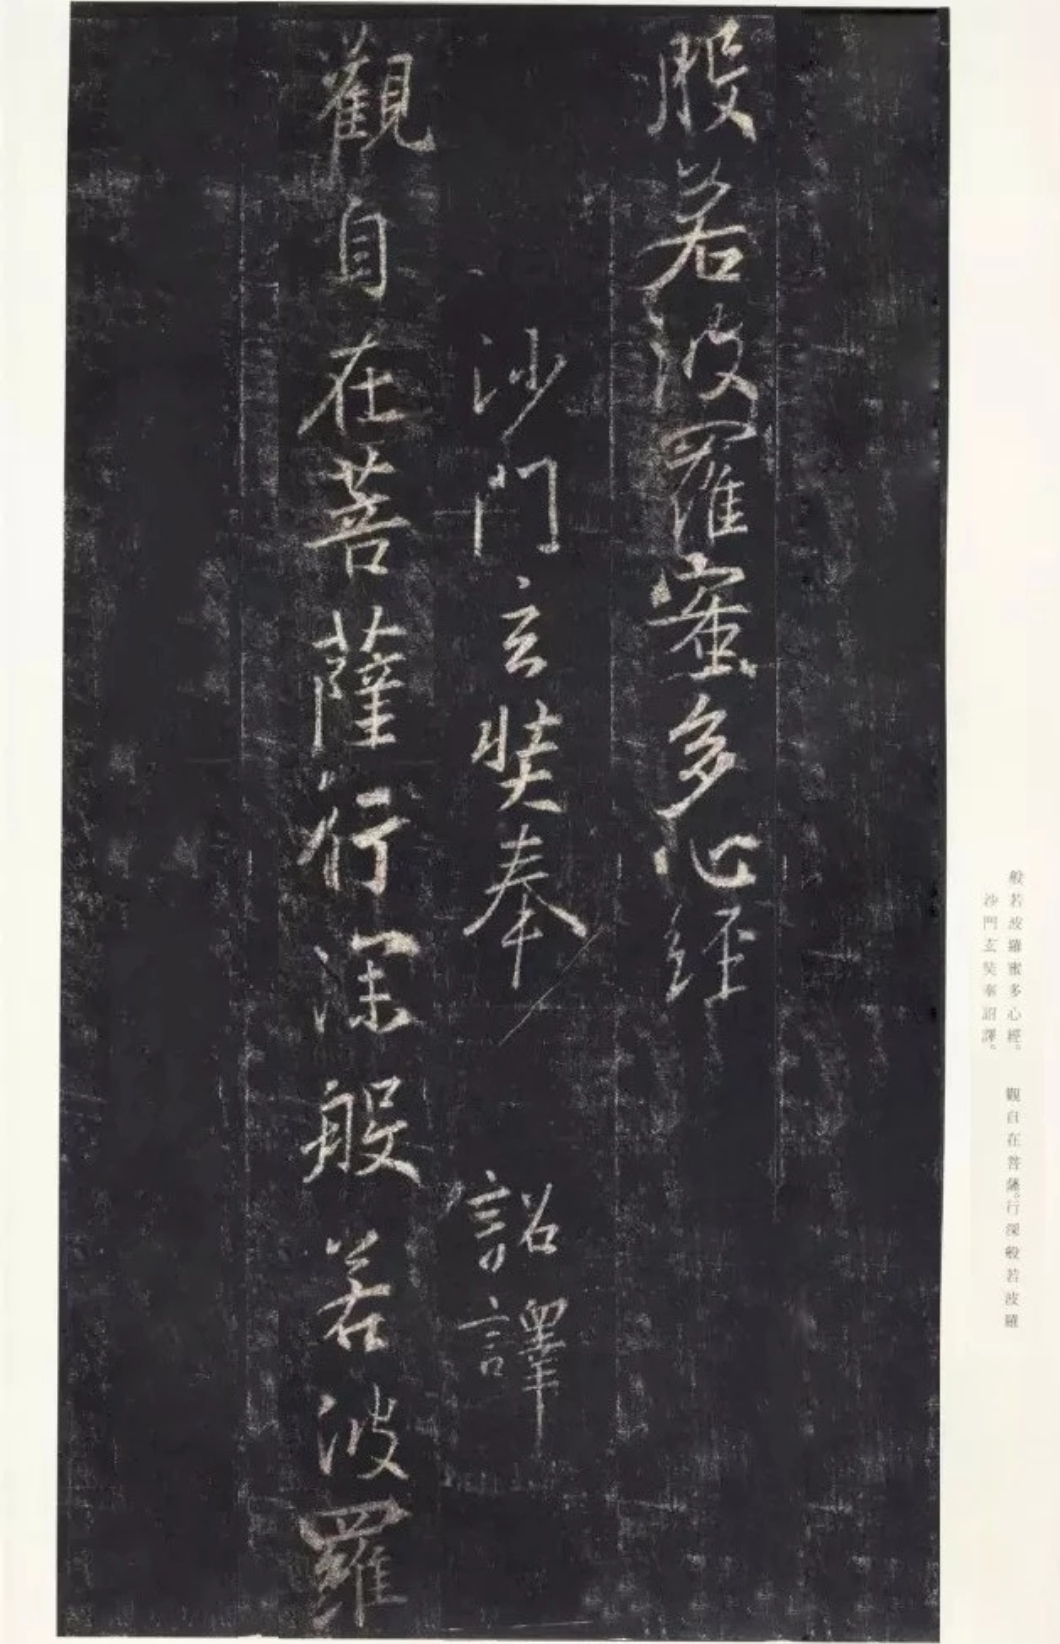 般若波羅蜜多心経
沙門玄奘奉
詔譯
觀自在菩薩行深般若波羅
般若波羅蜜多心經。 觀自在菩薩。行深般若波羅
沙門玄奘奉詔譯。